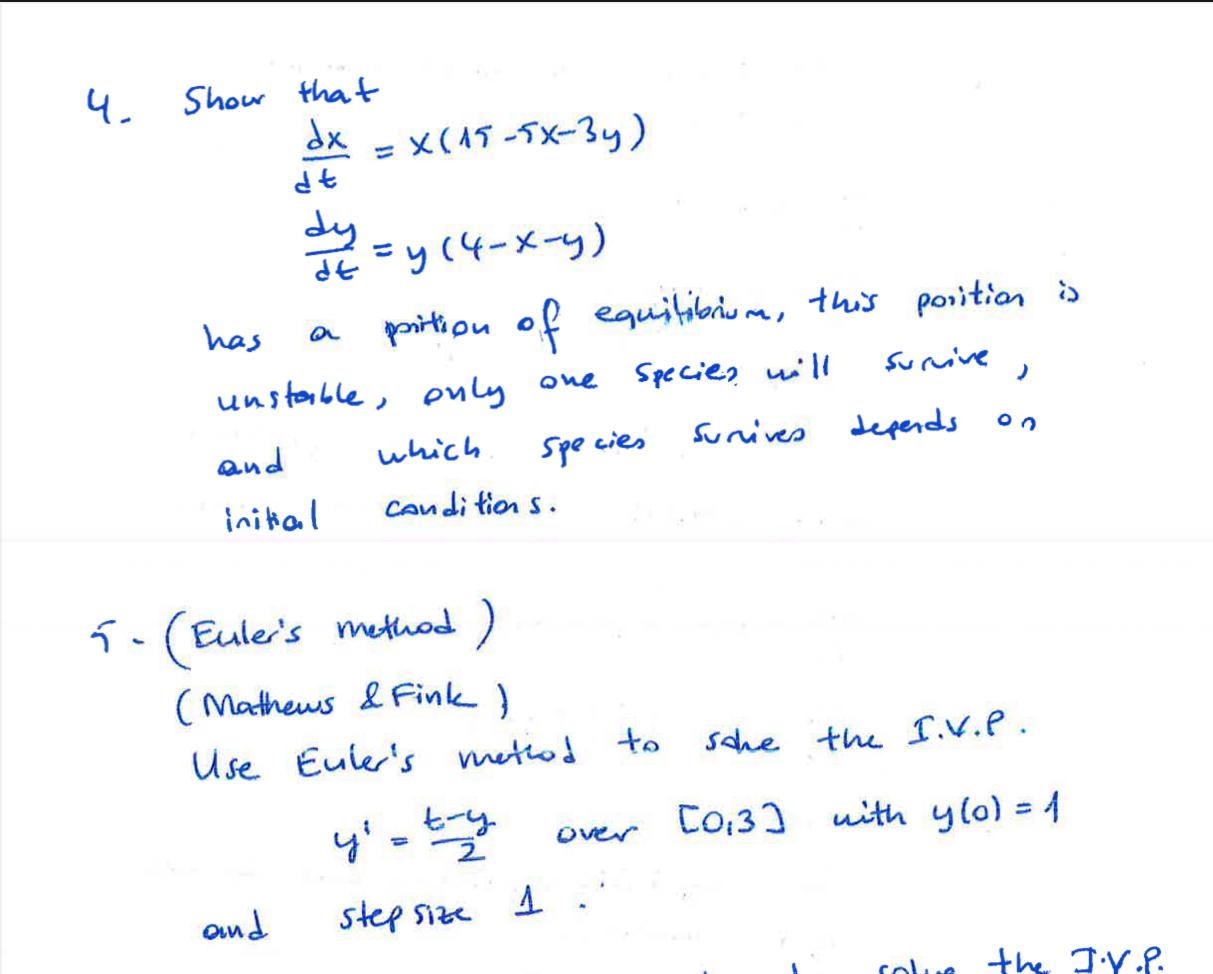 4. Show that
dx/dt = x(15-5x-3y)
dy/dt = y(4-x-y)
has a position of equilibrium, this position is
unstable, only one species will survive,
and which species survives depends on
initial conditions.
5- (Euler's method)
(Mathews & Fink)
Use Euler's method to solve the I.V.P.
y' = t-y/2 over [0,3] with y(0) = 1
and step size 1.
solve the I.V.P.